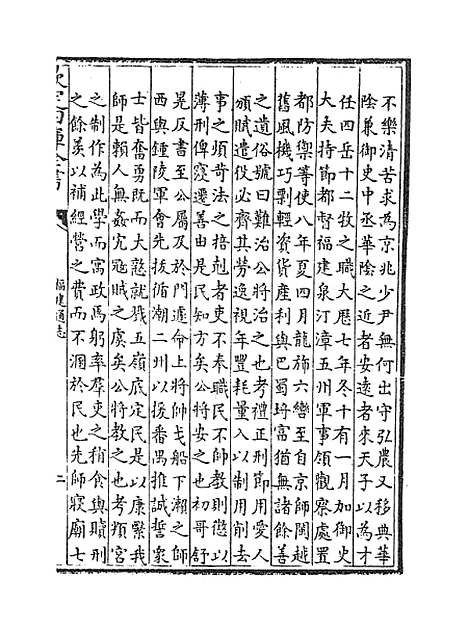 不樂清苦求為京兆少尹無何出守弘農又移典華
陰兼御史中丞華陰之近者安遠者來天子以為才
任四岳十二牧之職大厯七年冬十有一月加御史
大夫持節都督福建泉汀漳五州軍事領觀察處置
都防禦等使八年夏四月龍旂六轡至自京師閩越
舊風機巧剽輕資貨產利與巴蜀埒富猶無諸餘善
之遺俗號曰難治公將治之也考禮正刑節用愛人
頒賦遣役必齊其勞逸視年豐耗量入以制用削去
事之煩苛法之掊剋者吏不奉職民不帥教則懲以
薄刑俾竄遷善由是民知方矣公將安之也初哥舒
晃反書至公履及於門遽命上將帥戈船下瀨之師
西與鍾陵軍會先拔循潮二州以援番禺推誠誓衆
士皆奮勇既而大憝就戮五嶺底定民是以康繄我
師是賴人無姦宄寇賊之虞矣公將教之也考頖宮
之制作為此學而寓政焉躬率羣吏之稍食與贖刑
之餘羨以補經營之費而不溷於民也先師寢廟七
欽定四庫全書
福建通志
二